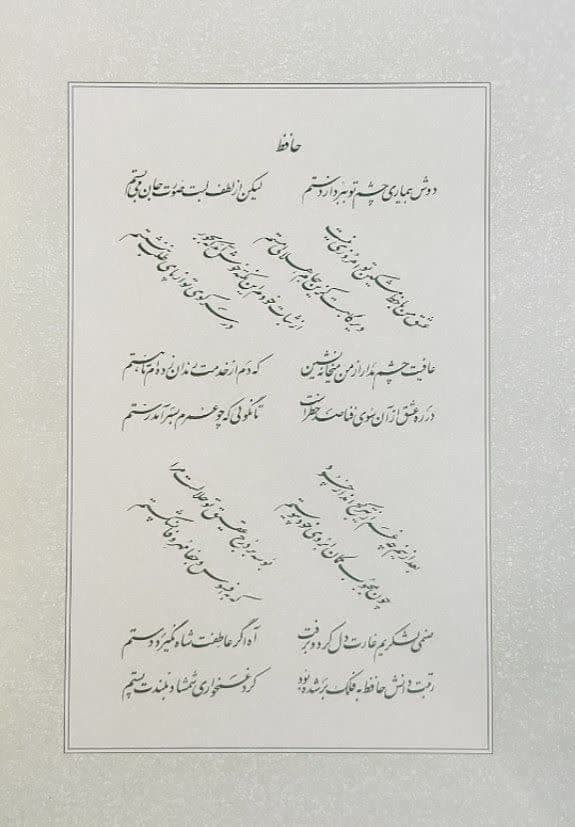 حافظ
دوش بیماری چشم تو ببرد از دستم لیکن از لطف لبت صورت جان می‌بستم
عشق من با خط مشکین تو امروزی نیست
دیرگاهست کزین جام هلالی مستم
از ثبات خودم این نکته خوش آمد که بجور
در سر کوی تو از پای طلب ننشستم
عافیت چشم مدار از من میخانه نشین که دم از خدمت رندان زده‌ام تا هستم
در ره عشق از آن سوی فنا صد خطرست تا نگوئی که چو عمرم بسر آمد رستم
بعد ازینم چه غم از تیر کج انداز حسود
چون بمحبوب کمان ابروی خود پیوستم
بوسه بر درج عقیق تو حلالست مرا
که به افسوس و جفا مهر وفا نشکستم
صنمی لشکریم غارت دل کرد و برفت آه اگر عاطفت شاه نگیرد دستم
رتبت دانش حافظ به فلک بر شده بود کرد غمخواری شمشاد بلندت پستم